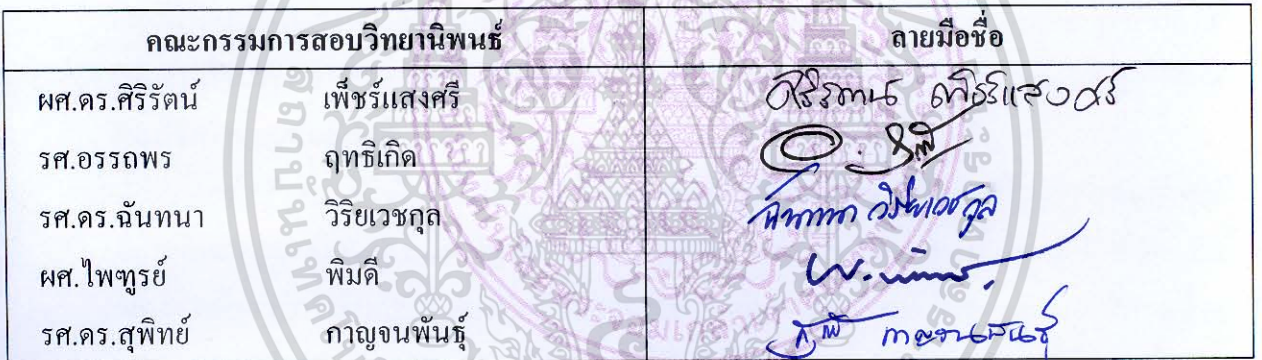 คณะกรรมการสอบวิทยานิพนธ์ ลายมือชื่อ
ผศ.ดร.ศิริรัตน์ เพ็ชร์แสงศรี ศิริรัตน์ เพ็ชร์แสงศรี
รศ.อรรถพร ฤทธิเกิด
รศ.ดร.ฉันทนา วิริยเวชกุล ฉันทนา วิริยเวชกุล
ผศ.ไพฑูรย์ พิมดี
รศ.ดร.สุพิทย์ กาญจนพันธุ์ กาญจนพันธุ์